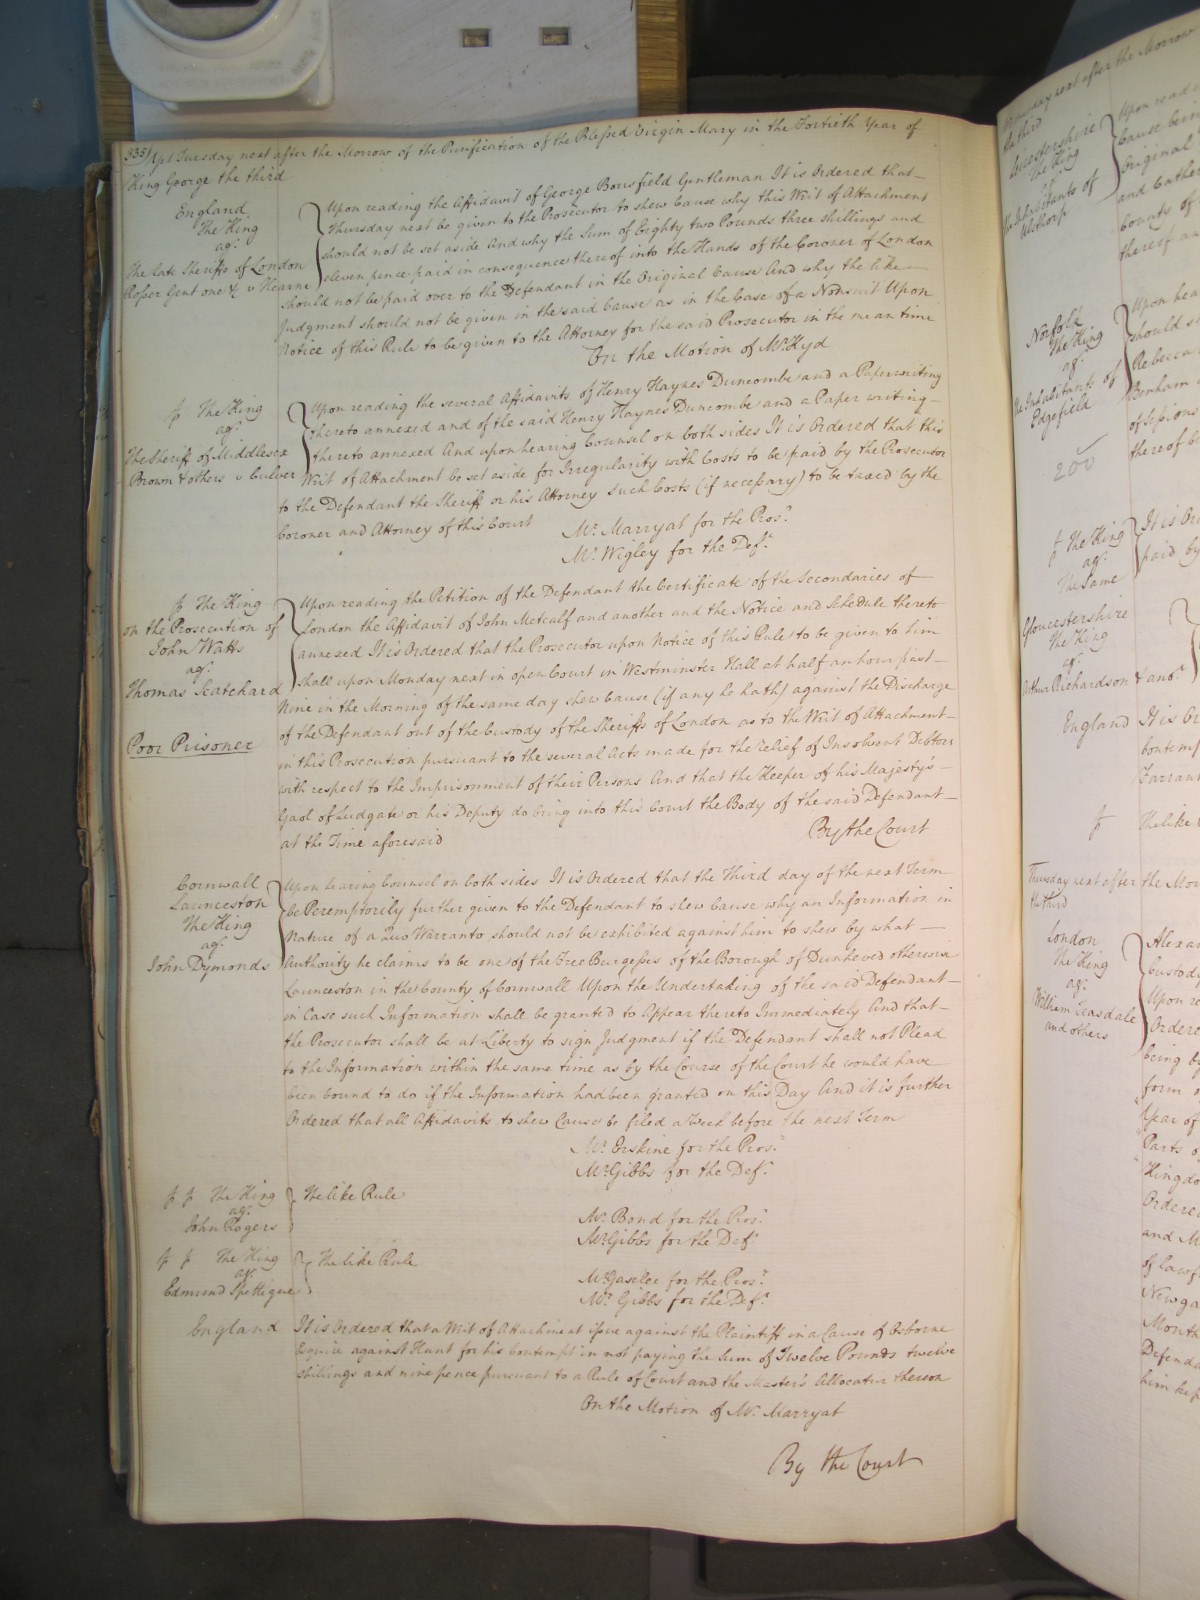 335) Yet Tuesday next after the Morrow of the Purification of the Blessed Virgin Mary in the Fortieth Year of
King George the third
England
The King
agt.
The late Sheriffs of London
Rosser Gent one &c v Hearne
Upon reading the Affidavit of George Bousfield Gentleman It is Ordered that
Thursday next be given to the Prosecutor to shew Cause why this Writ of Attachment
should not be set aside And why the Sum of Eighty two Pounds three shillings and
eleven pence paid in consequence thereof into the Hands of the Coroner of London
should not be paid over to the Defendant in the Original Cause And why the like
Judgment should not be given in the said Cause as in the Case of a Nonsuit Upon
Notice of this Rule to be given to the Attorney for the said Prosecutor in the mean time
On the Motion of Mr. Kyd
The King
agt.
The Sheriff of Middlesex
Brown & others v Culver
Upon reading the several Affidavits of Henry Haynes Duncombe and a Paperwriting
thereto annexed and of the said Henry Haynes Duncombe and a Paper writing
thereto annexed And upon hearing Counsel on both sides It is Ordered that this
Writ of Attachment be set aside for Irregularity with Costs to be paid by the Prosecutor
to the Defendant the Sheriff or his Attorney such Costs (if necessary) to be taxed by the
Coroner and Attorney of this Court
Mr. Marryat for the Prosr.
Mr. Wigley for the Deft.
The King
on the Prosecution of
John Watts
agt.
Thomas Scatchard
Poor Prisoner
Upon reading the Petition of the Defendant the Certificate of the Secondaries of
London the Affidavit of John Metcalf and another and the Notice and Schedule thereto
annexed It is Ordered that the Prosecutor upon Notice of this Rule to be given to him
shall upon Monday next in open Court in Westminster Hall at half an hour past
Nine in the Morning of the same day shew Cause (if any he hath) against the Discharge
of the Defendant out of the Custody of the Sheriffs of London as to the Writ of Attachment
in this Prosecution pursuant to the several Acts made for the relief of Insolvent Debtors
with respect to the Imprisonment of their Persons And that the Keeper of his Majesty's
Gaol of Ludgate or his Deputy do bring into this Court the Body of the said Defendant
at the Time aforesaid
By the Court
Cornwall
Launceston
The King
agt.
John Dymonds
Upon hearing Counsel on both sides It is Ordered that the Third day of the next Term
be Peremptorily further given to the Defendant to shew Cause why an Information in
Nature of a Quo Warranto should not be exhibited against him to shew by what
Authority he claims to be one of the Free Burgesses of the Borough of Dunheved otherwise
Launceston in the County of Cornwall Upon the Undertaking of the said Defendant
in Case such Information shall be granted to Appear thereto Immediately And that
the Prosecutor shall be at Liberty to sign Judgment if the Defendant shall not Plead
to the Information within the same time as by the Course of the Court he would have
been bound to do if the Information had been granted on this Day And it is further
Ordered that all Affidavits to shew Cause be filed a Week before the next Term
Mr. Erskine for the Prosr.
Mr. Gibbs for the Deft.
The King
agt.
John Rogers
The like Rule
Mr. Bond for the Prosr.
Mr. Gibbs for the Deft.
The King
agt.
Edmund Spettigue
The like Rule
Mr. Gaselee for the Prosr.
Mr. Gibbs for the Deft.
England
It is Ordered that a Writ of Attachment issue against the Plaintiff in a Cause of Osborne
Esquire against Hunt for his Contempt in not paying the Sum of Twelve Pounds twelve
shillings and nine pence pursuant to a Rule of Court and the Master's Allocatur thereon
On the Motion of Mr. Marryat
By the Court
Leicestershire
The King
agt.
The Inhabitants of
Upon read
Cause bein
Original
and Cather
County of
thereof an
Norfolk
The King
agt.
The Inhabitants of
Edgefield
200
Upon hea
should s
Rebecca
Benham
of Sessions
thereof b
The King
agt.
The Same
It is Or
paid by
Gloucestershire
The King
agt.
Arthur Richardson & anor.
England
It is Or
Contemp
Farrant
The like
Thursday next after the Mor
the third
London
The King
agt.
William Teasdale
and others
Alexa
Custody
Upon re
Ordere
being b
form o
Year of
Parts o
Kingdo
Ordered
and M
of lawf
Newga
Month
Defenda
him kep